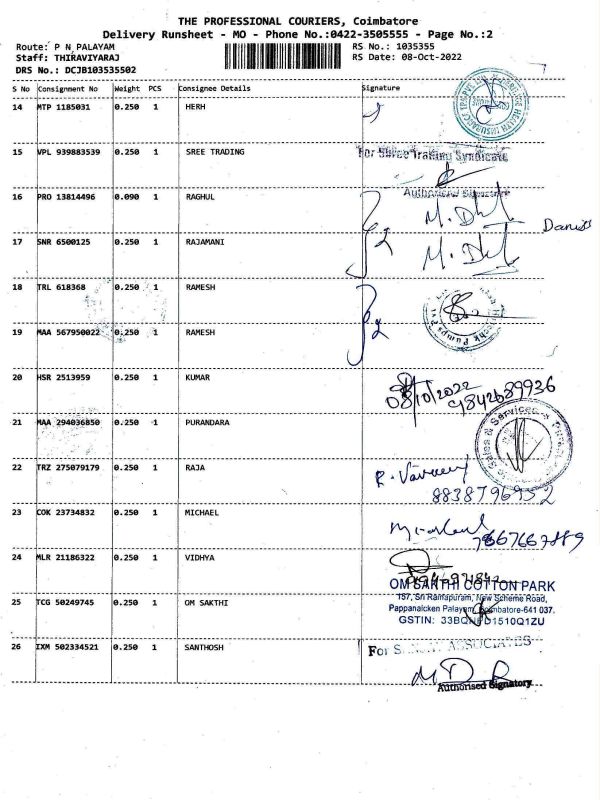 THE PROFESSIONAL COURIERS, Coimbatore
Delivery Runsheet - MO - Phone No.:0422-3505555 - Page No.:2
Route: P N PALAYAM
RS No.: 1035355
Staff: THIRAVIYARAJ
RS Date: 08-Oct-2022
DRS No.: DCJB103535502
S No Consignment No Weight PCS Consignee Details Signature
14 MTP 1185031 0.250 1 HERH
15 VPL 939883539 0.250 1 SREE TRADING
For Shree Trading Syndicate
Authorised Signatory
16 PRO 13814496 0.090 1 RAGHUL
17 SNR 6500125 0.250 1 RAJAMANI
18 TRL 618368 0.250 1 RAMESH
19 MAA 567950022 0.250 1 RAMESH
20 HSR 2513959 0.250 1 KUMAR
08/10/2022
9842689936
21 MAA 294036850 0.250 1 PURANDARA
Sales & Services
22 TRZ 275079179 0.250 1 RAJA
8838796952
23 COK 23734832 0.250 1 MICHAEL
24 MLR 21186322 0.250 1 VIDHYA
OM SAKTHI COTTON PARK
197, Sri Ramapuram, New Scheme Road,
Pappanaicken Palayam, Coimbatore-641 037.
25 TCG 50249745 0.250 1 OM SAKTHI
26 IXM 502334521 0.250 1 SANTHOSH
For ASSOCIATES
Authorised Signatory